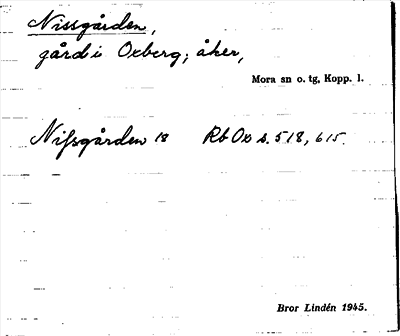 Nissgården,
gård i Oxberg; åker,
Mora sn o. tg, Kopp. l.
Nissgården 18 Rb Ox s. 518, 615.
Bror Lindén 1945.